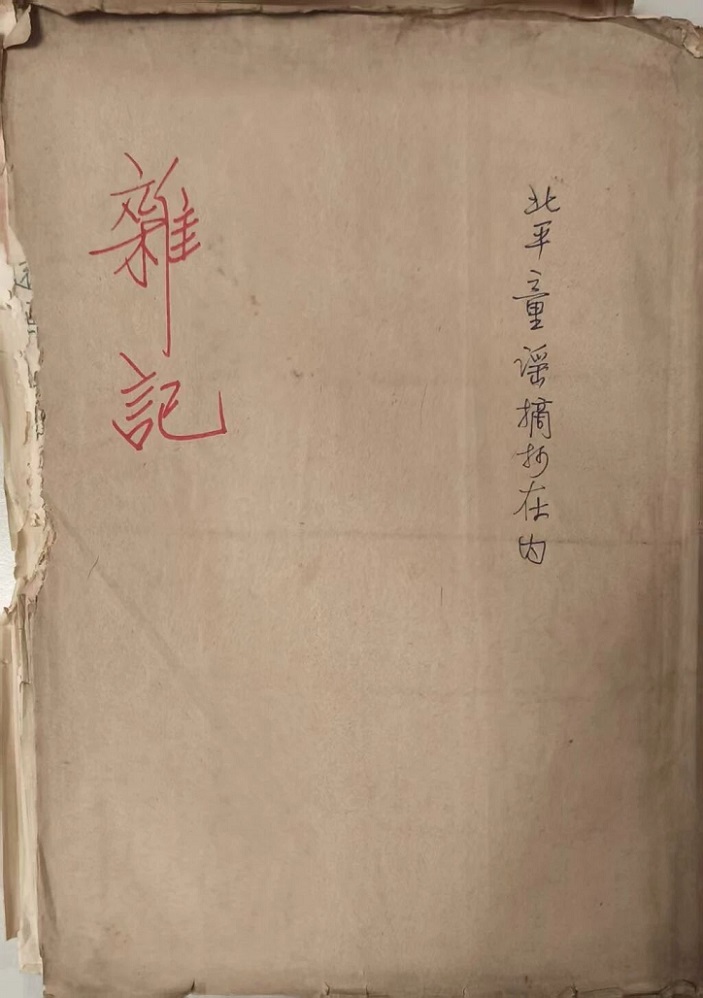 北平童谣摘抄在内
雜記